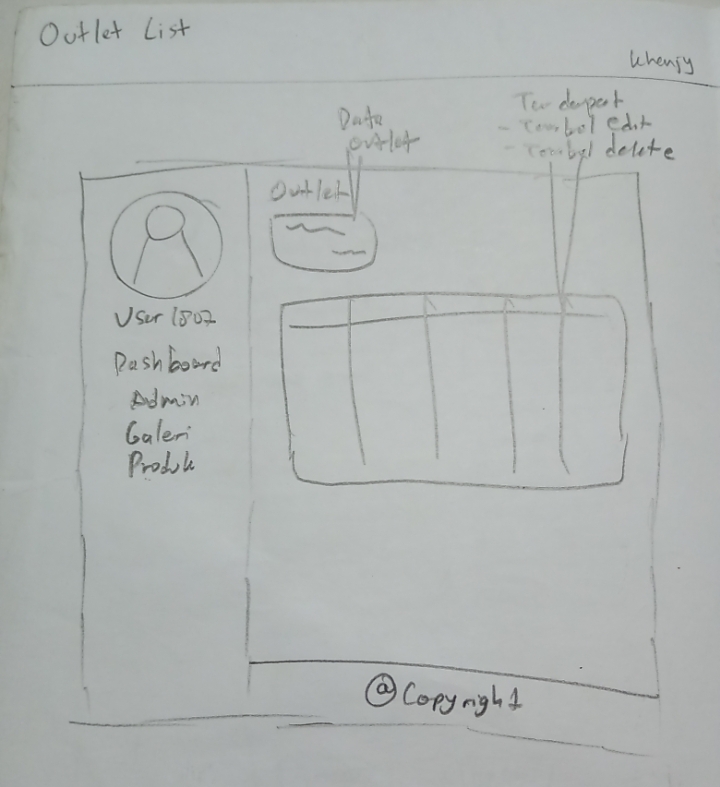 Outlet List
Khenjy
Data
outlet
Terdapat
- Tombol edit
- Tombol delete
Outlet
User 1807
Dashboard
Admin
Galeri
Produk
@ Copyright